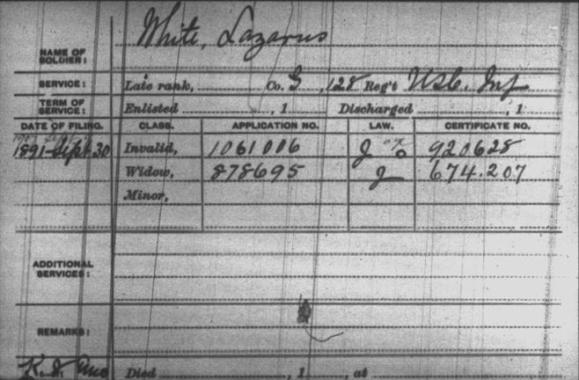 White, Lazarus
NAME OF SOLDIER:
SERVICE: Late rank, Co. G, 128 Reg't USC. Inf
TERM OF SERVICE: Enlisted , 1 Discharged , 1
DATE OF FILING. CLASS. APPLICATION NO. LAW. CERTIFICATE NO.
1891-Sept. 30 Invalid, 1061006 J 920628
Widow, 878695 J 674.207
Minor,
ADDITIONAL SERVICES:
REMARKS:
Died , 1 , at